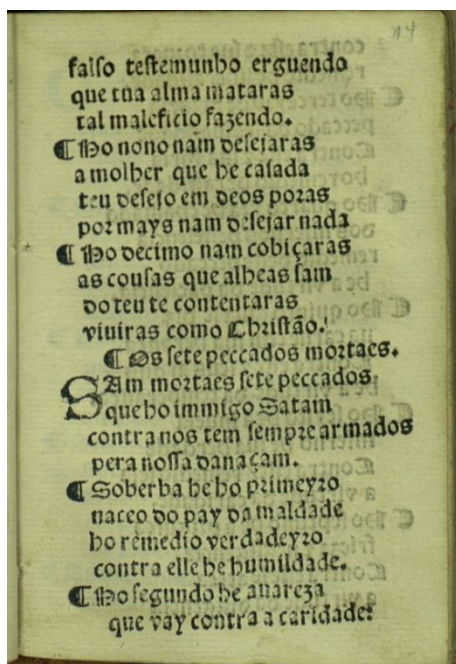 14
falso testemunho erguendo
que tua alma mataras
tal maleficio fazendo.
¶ No nono nam desejaras
a molher que he casada
teu desejo em deos poras
por mays nam desejar nada
¶ No decimo nam cobiçaras
as cousas que alheas sam
do teu te contentaras
viuiras como Christão.
¶ Os sete peccados mortaes.
SAm mortaes sete peccados
que ho immigo Satam
contra nos tem sempre armados
pera nossa danaçam.
¶ Soberba he ho primeyro
naceo do pay da maldade
ho remedio verdadeyro
contra elle he humildade.
¶ No segundo he auareza
que vay contra a caridade: